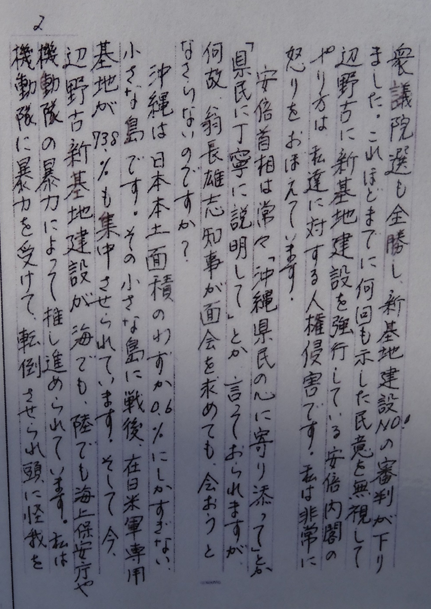 2
衆議院選も全勝し、新基地建設NO!の審判が下り
ました。これほどまでに何回も示した民意を無視して
辺野古に新基地建設を強行している安倍内閣の
やり方は私達に対する人権侵害です。私は非常に
怒りをおぼえています。
安倍首相は常々「沖縄県民の心に寄り添って」とか
「県民に丁寧に説明して」とか、言っておられますが
何故、翁長雄志知事が面会を求めても、会おうと
なさらないのですか?
沖縄は日本本土面積のわずか0.6%にしかすぎない
小さな島です。その小さな島に戦後、在日米軍専用
基地が73.8%も集中させられています。そして今、
辺野古新基地建設が海でも、陸でも海上保安庁や
機動隊の暴力によって推し進められています。私は
機動隊に暴力を受けて、転倒させられ頭に怪我を